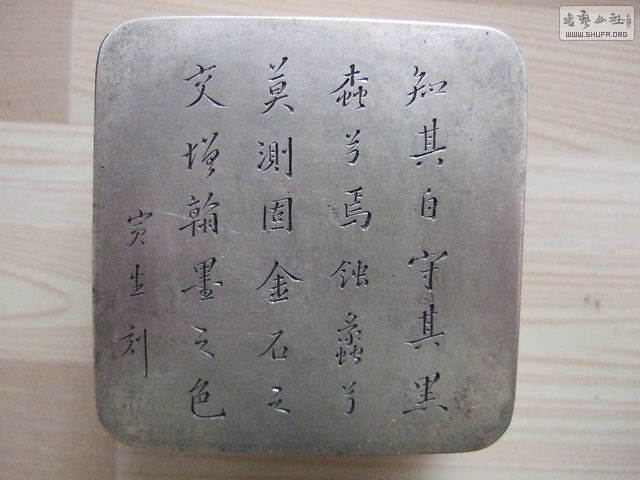 知其白守其黑
螙兮焉蝕蠡兮
莫測固金石之
交增翰墨之色
寅生刻
書藝公社
WWW.SHUFA.ORG